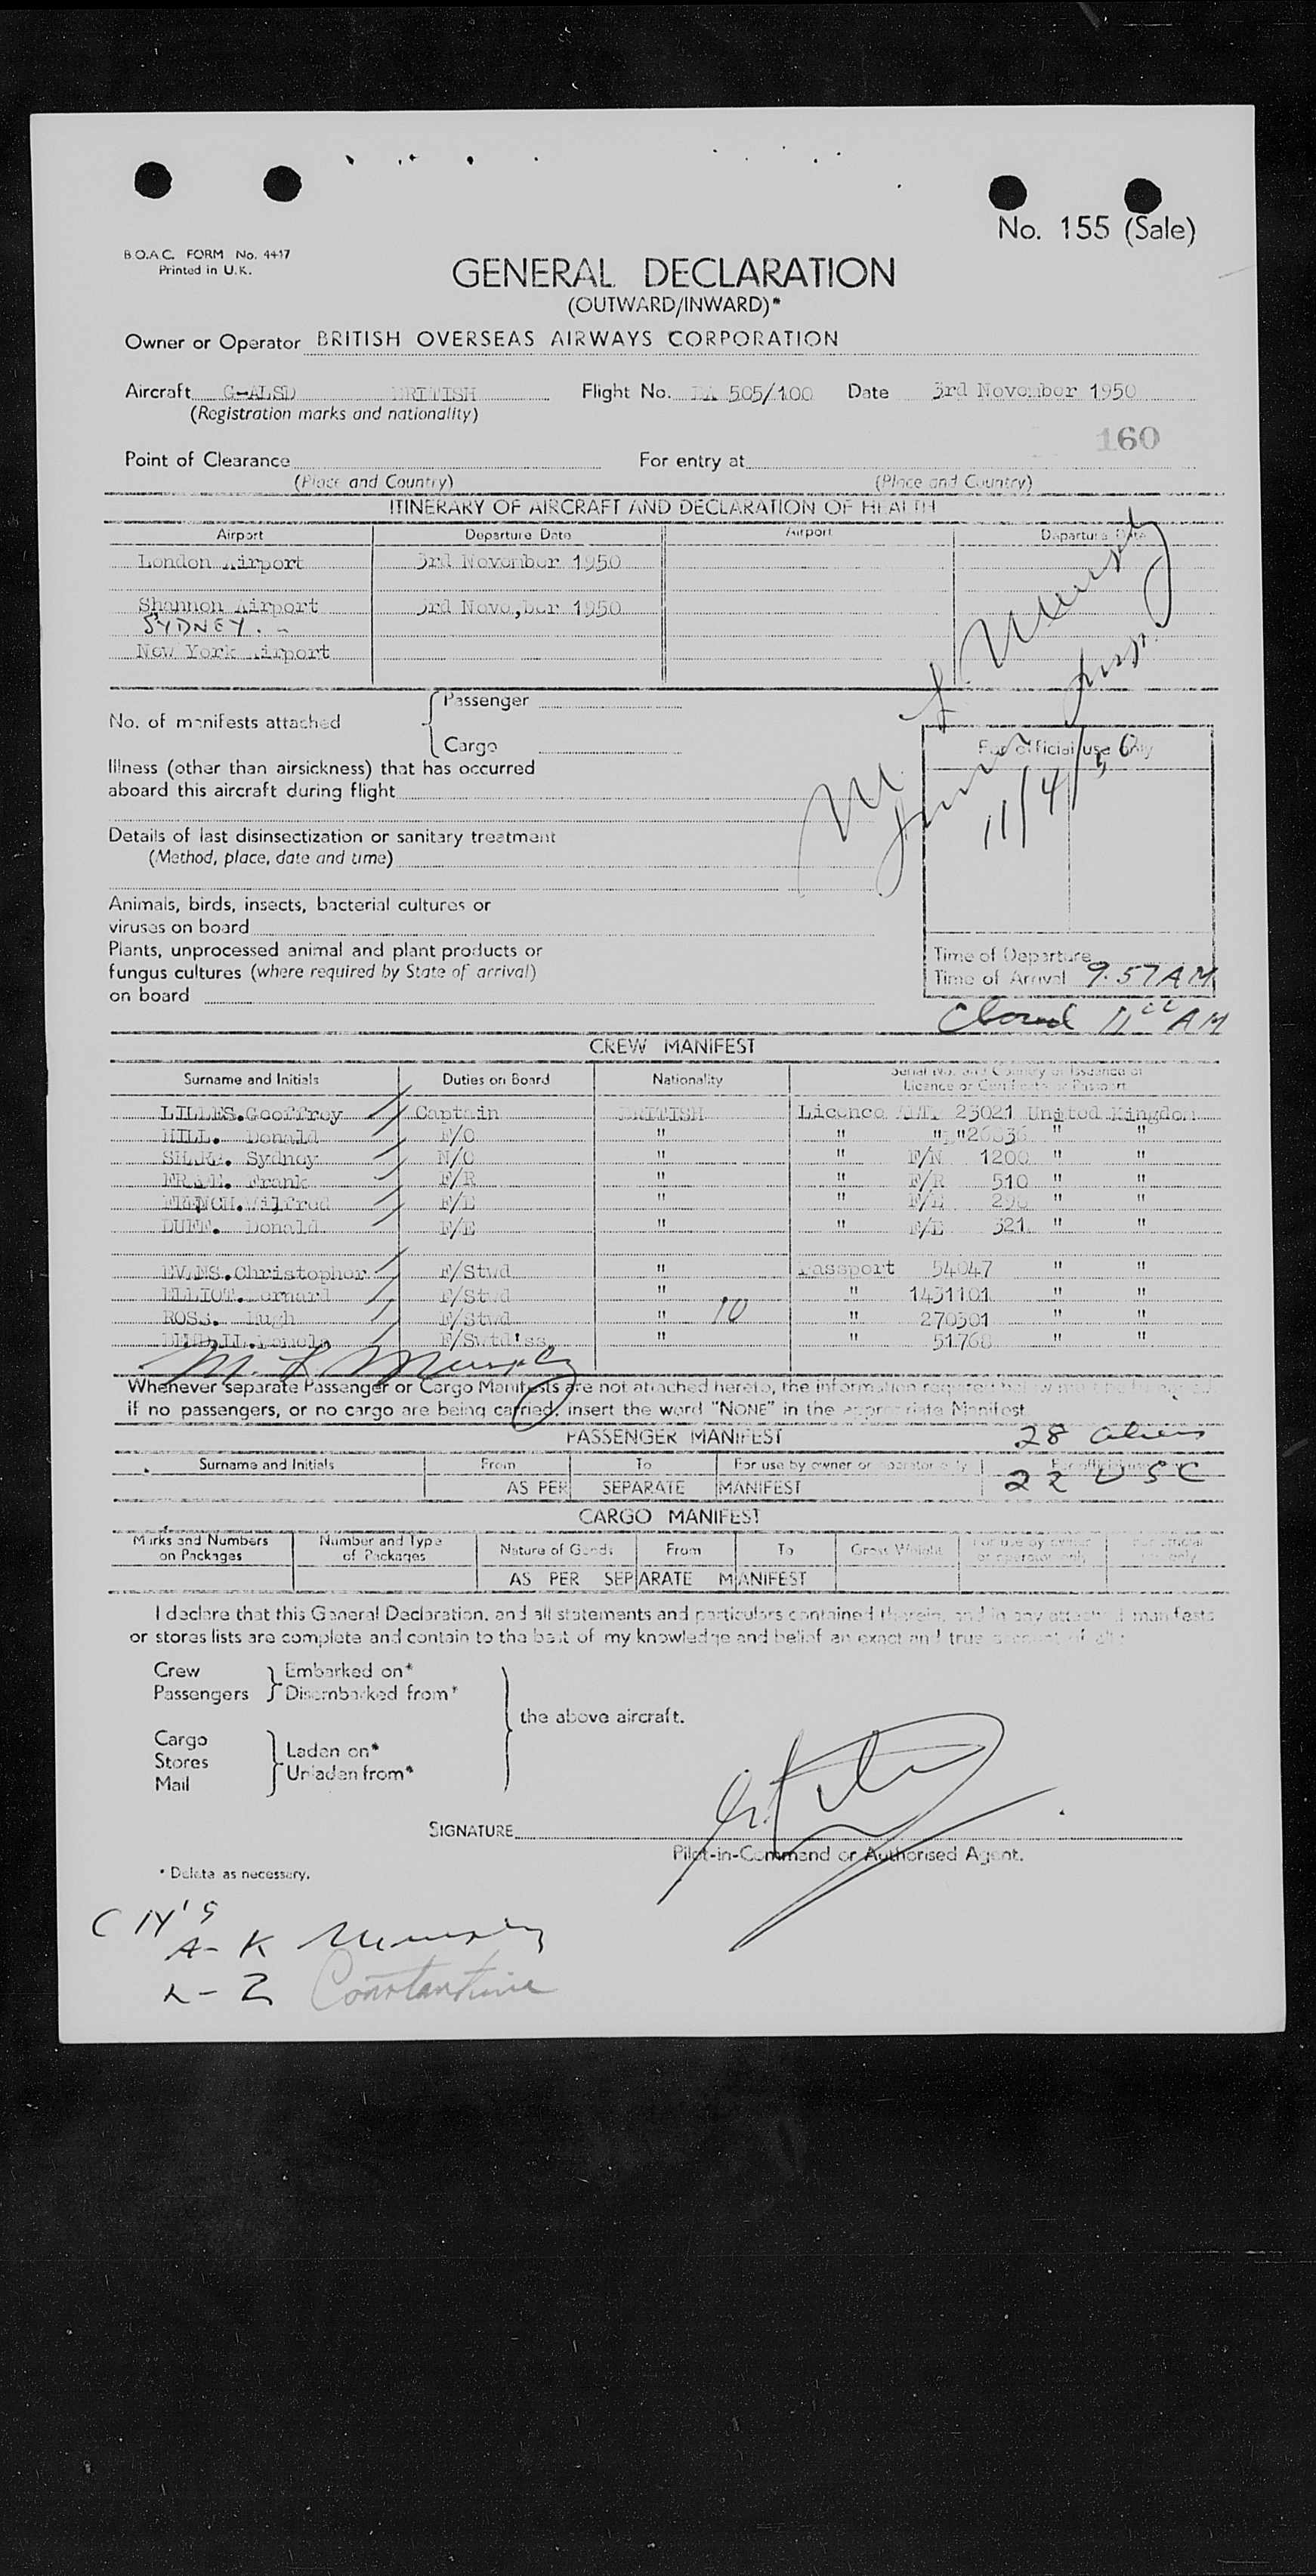 No. 155 (Sale)
B.O.A.C. FORM No. 4417
Printed in U.K.
GENERAL DECLARATION
(OUTWARD/INWARD)*
Owner or Operator BRITISH OVERSEAS AIRWAYS CORPORATION
Aircraft G-ALSD BRITISH Flight No. BA 505/100 Date 3rd November 1950
(Registration marks and nationality)
160
Point of Clearance For entry at
(Place and Country) (Place and Country)
ITINERARY OF AIRCRAFT AND DECLARATION OF HEALTH
Airport Departure Date Airport Departure Date
London Airport 3rd November 1950
Shannon Airport 3rd Nove,ber 1950
SYDNEY. -
New York Airport
No. of manifests attached
Passenger
Cargo
Illness (other than airsickness) that has occurred
aboard this aircraft during flight
Details of last disinsectization or sanitary treatment
(Method, place, date and time)
Animals, birds, insects, bacterial cultures or
viruses on board
Plants, unprocessed animal and plant products or
fungus cultures (where required by State of arrival)
on board
M. L. Murphy
For official use only
11/4/50
Time of Departure
Time of Arrival 9.57 AM
Closed 11 00 AM
CREW MANIFEST
Surname and Initials Duties on Board Nationality Serial No. and Country of Issuance of
Licence or Certificate or Passport
LILLES.Geoffrey Captain BRITISH Licence ALT. 23021 United Kingdom
HILL. Donald F/O " " " " " "
Sydney N/O " " F/N 1200 " "
Frank F/R " " F/R 510 " "
FRENCH.Wilfred F/E " " F/E " "
DUFF. Donald F/E " " F/E 321 " "
EVANS.Christopher F/Stwd " Passport 54047 " "
ELLIOT.Bernard F/Stwd " " 1431101 " "
ROSS. Hugh F/Stwd " 10 " 270301 " "
F/Swtd'ss " " 51768 " "
M. L. Murphy
Whenever separate Passenger or Cargo Manifests are not attached hereto, the information required below must be
if no passengers, or no cargo are being carried, insert the word "NONE" in the appropriate Manifest
PASSENGER MANIFEST 28 aliens
Surname and Initials From To For use by owner or operator only For official use only
22 USC
AS PER SEPARATE MANIFEST
CARGO MANIFEST
Marks and Numbers on Packages Number and Type of Packages Nature of Goods From To Gross Weight For use by owner or operator only For official use only
AS PER SEPARATE MANIFEST
I declare that this General Declaration, and all statements and particulars contained therein, and in any attached manifests
or stores lists are complete and contain to the best of my knowledge and belief an exact and true account of all:
Crew
Passengers
Embarked on*
Disembarked from*
the above aircraft.
Cargo
Stores
Mail
Laden on*
Unladen from*
SIGNATURE
Pilot-in-Command or Authorised Agent.
* Delete as necessary.
A - K Murphy
L - Z Constantine